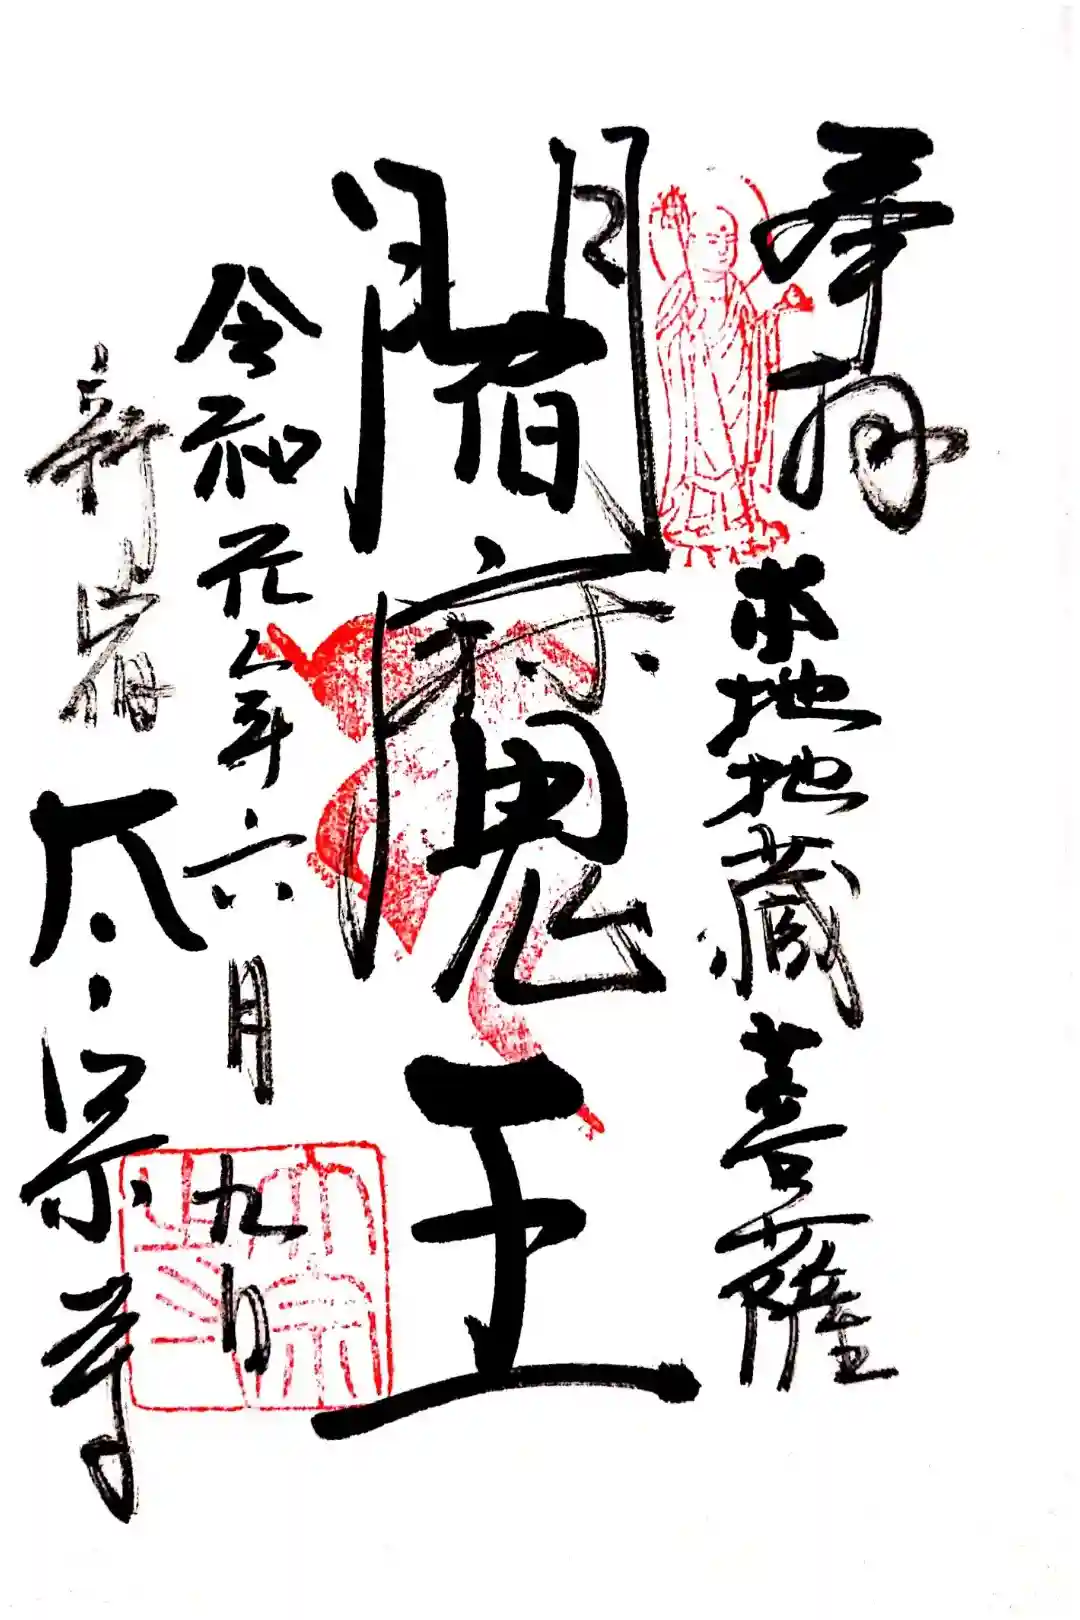 奉拝
本地地蔵菩薩
閻魔王
令和元年六月九日
新宿 太宗寺